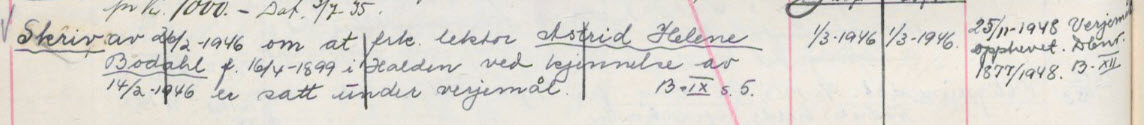 pr kr. 1000.- Dat. 3/7-35.
Skriv av 26/2-1946 om at frk. lektor Astrid Helene
Bodahl f. 16/4-1899 i Halden ved kjennelse av
14/2-1946 er satt under verjemål. B-IX s. 5.
1/3-1946 1/3-1946.
25/11-1948 Verjemål
opphevet. Dbnr.
1877/1948. B-XII